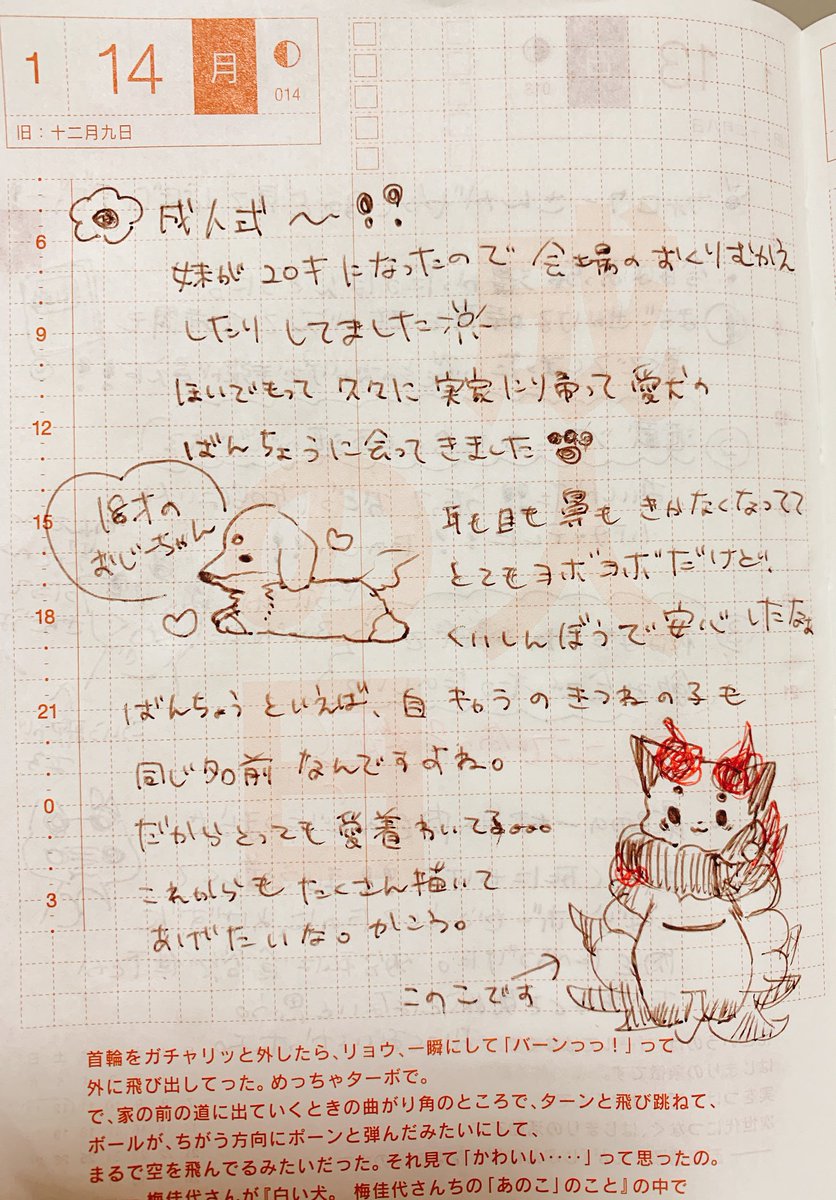 1 14 月
014
旧：十二月九日
成人式〜!!
妹が20才になったので会場のおくりむかえ
したりしてました
ほいでもって久々に実家に帰って愛犬の
ばんちょうに会ってきました
18才の
おじーちゃん
耳も目も鼻もきかなくなってて
とてもヨボヨボだけど!
くいしんぼうで安心したなぁ
ばんちょうといえば、自キャラのきつねの子も
同じ名前なんですよね。
だからとっても愛着わいてる。。。
これからもたくさん描いて
あげたいな。かこう。
このこです
6
9
12
15
18
21
0
3
首輪をガチャリッと外したら、リョウ、一瞬にして「バーンっっ！」って
外に飛び出してった。めっちゃターボで。
で、家の前の道に出ていくときの曲がり角のところで、ターンと飛び跳ねて、
ボールが、ちがう方向にポーンと弾んだみたいにして、
まるで空を飛んでるみたいだった。それ見て「かわいい‥‥」って思ったの。
梅佳代さんが『白い犬。 梅佳代さんちの「あのこ」のこと』の中で